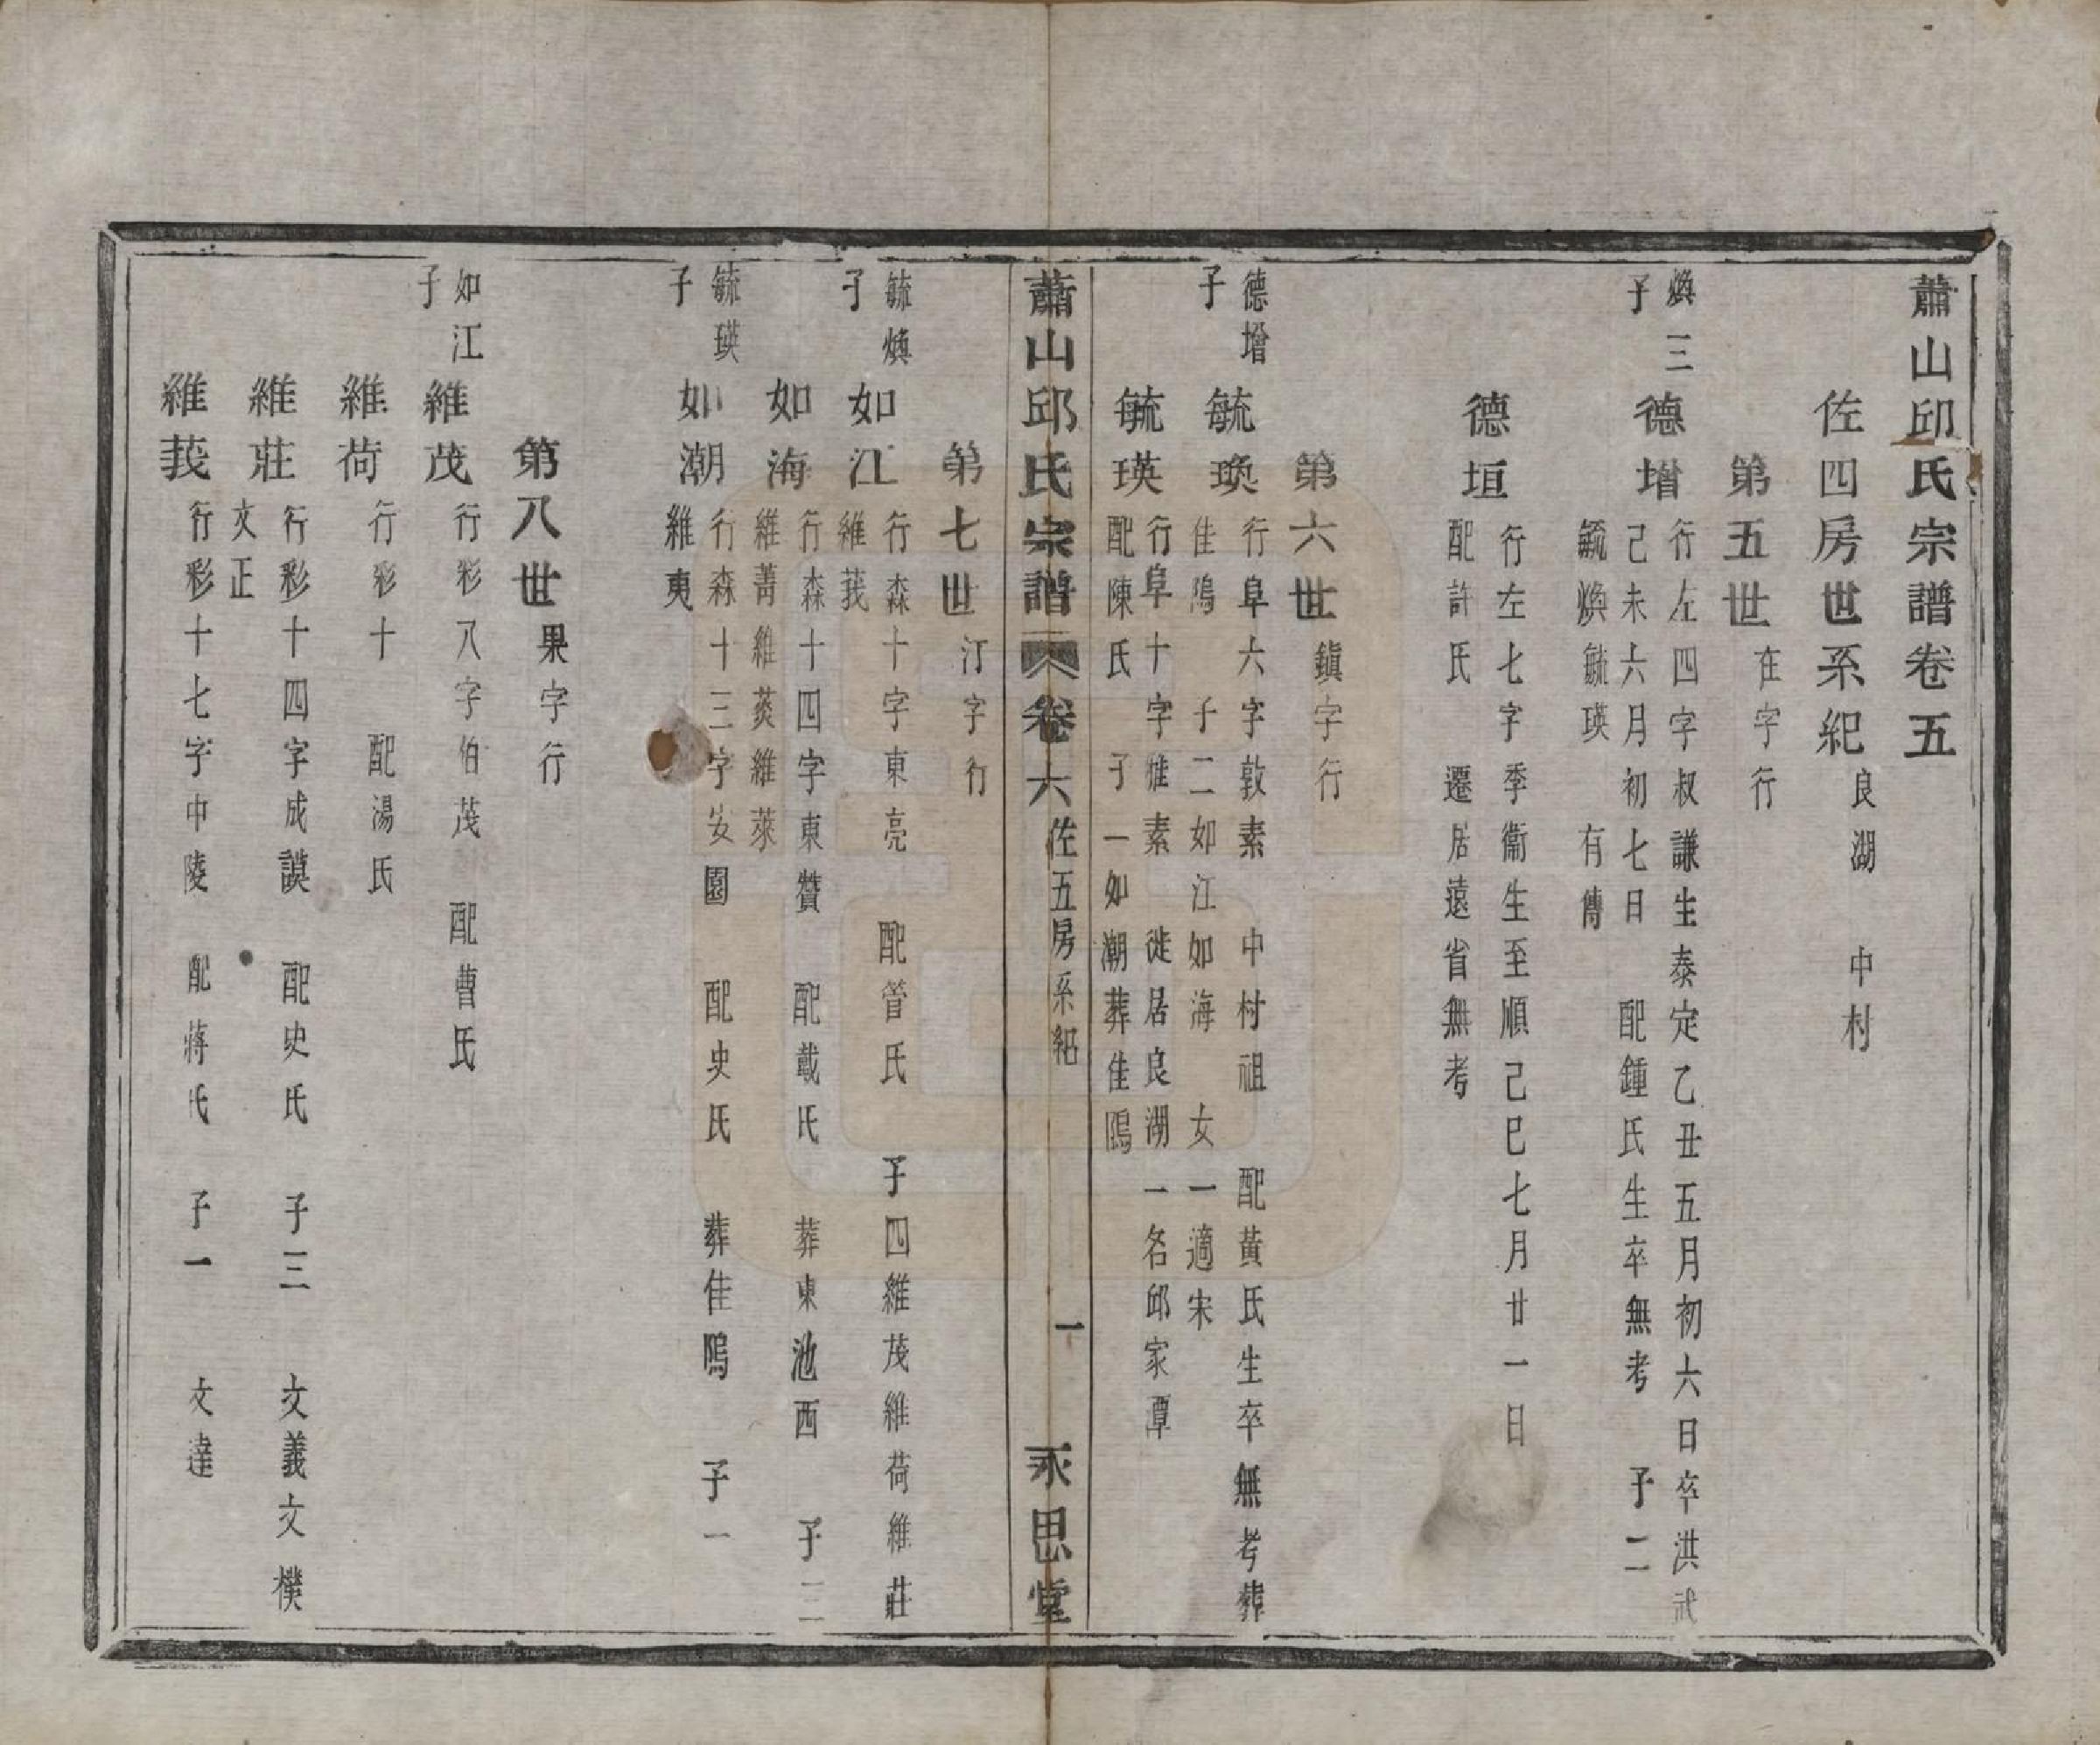 蕭山邱氏宗譜卷五
佐四房世系紀良湖　中村
第五世在字行
煥三子
德增行左四字叔謙生泰定乙丑五月初六日卒洪武
己未六月初七日　配鍾氏生卒無考　子二
毓煥毓瑛　有傳
德垣行左七字季衞生至順己巳七月廿一日
配許氏　遷居遠省無考
第六世鎮字行
德增子
毓瑍行阜六字敦素　中村祖　配黃氏生卒無考葬
佳隖　子二如江如海　女一適宋
毓瑛行阜十字雅素　徙居良湖一名邱家潭
配陳氏　子一如潮葬佳隖
蕭山邱氏宗譜　卷六　佐五房系紀　一　永思堂
第七世汀字行
毓煥子
如江行森十字東亮　配管氏　子四維茂維荷維莊
維莪
如海行森十四字東贊　配戴氏　葬東池西　子二
維菁維葵維萊
毓瑛子
如潮行森十三字安園　配史氏　葬佳隖　子一
維夷
第八世果字行
如江子
維茂行彩八字伯茂　配曹氏
維荷行彩十　配湯氏
維莊行彩十四字成謨　配史氏　子三　文義文樸
文正
維莪行彩十七字中陵　配蔣氏　子一　文達